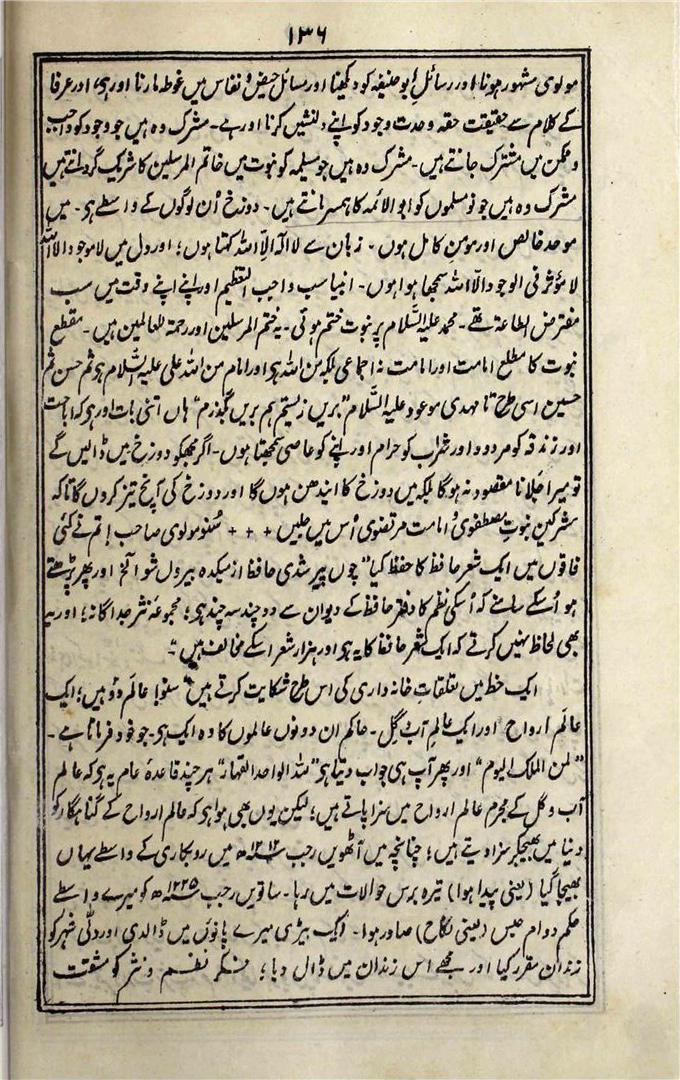 ۱۳۶
مولوی مشہور ہونا اور رسائل ابو حنیفہ کو دیکھنا اور مسائل حیض و نفاس میں غوطہ مارنا اور ہی، اور عرفا
کے کلام سے حقیقت حقہ وحدت وجود کو اپنے دلنشیں کرنا اور ہے۔ مشرک وہ ہیں جو وجود کو واجب
و ممکن میں مشترک جانتے ہیں۔ مشرک وہ ہیں جو مسیلمہ کو نبوت میں خاتم المرسلین کا شریک گردانتے ہیں
مشرک وہ ہیں جو نو مسلموں کو ابو الائمہ کا ہمسر مانتے ہیں۔ دوزخ اُن لوگوں کے واسطے ہی۔ میں
موحد خالص اور مومن کامل ہوں۔ زبان سے لا الٰہ الّا اللہ کہتا ہوں؛ اور دل میں لا موجود الا اللہ
لا مؤثر فی الوجود الّا اللہ سمجھا ہوا ہوں۔ انبیا سب واجب التعظیم اور اپنے اپنے وقت میں سب
مفترض الطاعۃ تھے۔ محمد علیہ السَّلام پر نبوت ختم ہوئی۔ یہ ختم المرسلین اور رحمۃ للعالمین ہیں۔ مقطع
نبوت کا مطلع امامت اور امامت نہ اجماعی بلکہ من اللہ ہی اور امام من اللہ علی علیہ السَّلام ہی ثم حسن ثم
حسین اسی طرح تا مہدی موعود علیہ السَّلام "بریں زیستم ہم بریں بگذرم" ہاں اتنی بات اور ہی کہ اباحت
اور زندقہ کو مردود اور شراب کو حرام اور اپنے کو عاصی سمجھتا ہوں۔ اگر مجھکو دوزخ میں ڈالیں گے
تو میرا جلانا مقصود نہ ہوگا بلکہ میں دوزخ کا ایندھن ہوں گا اور دوزخ کی آنچ تیز کروں گا تاکہ
مشرکین نبوت مصطفوی و امامت مرتضوی اُس میں جلیں + + + سُنو مولوی صاحب! تم نے کئی
فاقوں میں ایک شعر حافظ کا حفظ کیا "چوں پیر شدی حافظ از میکدہ بیروں شو" الخ اور پھر پڑھتے
ہو اُسکے سامنے کہ اُسکی نظم کا دفتر حافظ کے دیوان سے دو چند سہ چند ہی؛ مجموعۂ نثر جداگانہ؛ اور یہ
بھی لحاظ نہیں کرتے کہ ایک شعر حافظ کا یہ ہی اور ہزار شعر اسکے مخالف ہیں"۔
ایک خط میں تعلقات خانہ داری کی اس طرح شکایت کرتے ہیں "سنو! عالم دو ہیں؛ ایک
عالَم ارواح اور ایک عالم آب و گِل۔ حاکم ان دونوں عالموں کا وہ ایک ہی۔ جو خود فرماتا ہے۔
"لمن الملک الیوم" اور پھر آپ ہی جواب دیتا ہی "للہ الواحد القہار" ہر چند قاعدۂ عام یہ ہی کہ عالم
آب و گل کے مجرم عالم ارواح میں سزا پاتے ہیں؛ لیکن یوں بھی ہوا ہی کہ عالم ارواح کے گنہگار کو
دنیا میں بھیجکر سزا دیتے ہیں؛ چنانچہ میں آٹھویں رجب ۱۲۱۲ھ میں روبکاری کے واسطے یہاں
بھیجا گیا (یعنی پیدا ہوا) تیرہ برس حوالات میں رہا۔ ساتویں رجب ۱۲۲۵ھ کو میرے واسطے
حکم دوام حبس (یعنی نکاح) صادر ہوا۔ ایک بیڑی میرے پانؤں میں ڈالدی اور دلّی شہر کو
زندان مقرر کیا اور مجھے اس زندان میں ڈال دیا؛ فکر نظم و نثر کو مشقت